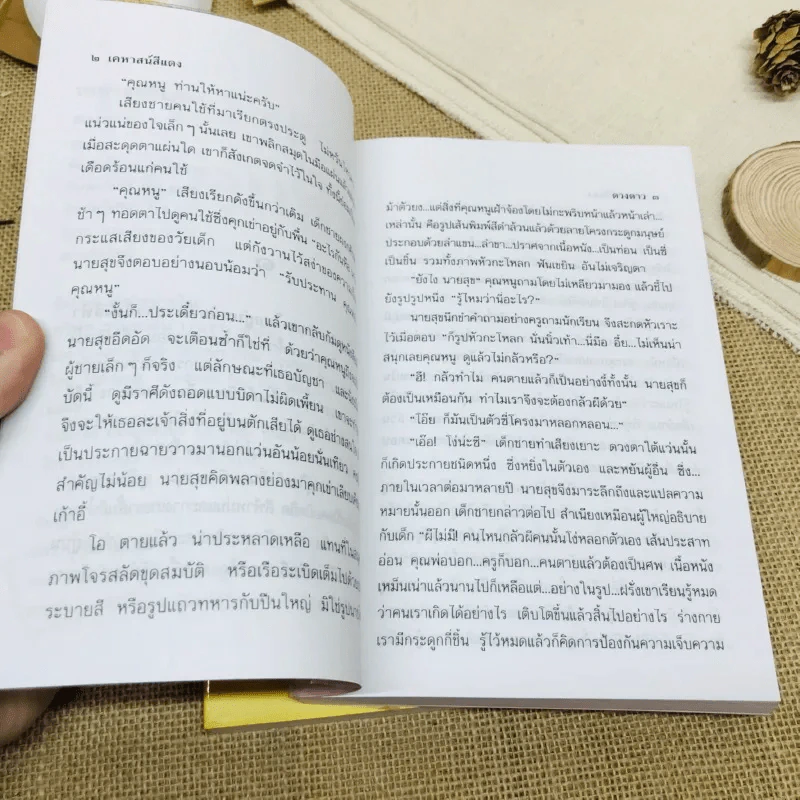 ๒ เคหาสน์สีแดง
"คุณหนู ท่านให้หาแน่ะครับ"
เสียงชายคนใช้ที่มาเรียกตรงประตู ไม่
แน่วแน่ของใจเล็กๆ นั้นเลย เขาพลิกสมุดในมือ
เมื่อสะดุดตาแผ่นใด เขาก็สังเกตจดจำไว้ในใจ ทั้งนี้
เดือดร้อนแก่คนใช้
"คุณหนู" เสียงเรียกดังขึ้นกว่าเดิม เด็กชาย
ช้าๆ ทอดตาไปดูคนใช้ซึ่งคุกเข่าอยู่กับพื้น "อะไรกัน
กระแสเสียงของวัยเด็ก แต่กังวานไว้สง่าของความ
นายสุขจึงตอบอย่างนอบน้อมว่า "รับประทาน
คุณหนู"
"งั้นก็...ประเดี๋ยวก่อน..." แล้วเขากลับก้มดู
นายสุขอึดอัด จะเตือนซ้ำก็ใช่ที่ ด้วยว่าคุณหนู
ผู้ชายเล็กๆ ก็จริง แต่ลักษณะที่เธอบัญชา และ
บัดนี้ ดูมีราศีดังถอดแบบบิดาไม่ผิดเพี้ยน
จึงจะให้เธอละเจ้าสิ่งที่อยู่บนตักเสียได้ ดูเธอช่าง
เป็นประกายฉายวาวมานอกแว่นอันน้อยนั่นเทียว
สำคัญไม่น้อย นายสุขคิดพลางย่องมาคุกเข่าเลียบ
เก้าอี้
โอ ตายแล้ว น่าประหลาดเหลือ แทนที่
ภาพโจรสลัดขุดสมบัติ หรือเรือระเบิดเต็มไปด้วย
ระบายสี หรือรูปแถวทหารกับปืนใหญ่ มิใช่รูป
ดวงดาว ๓
ม้าด้วยง...แต่สิ่งที่คุณหนูเฝ้าจ้องโดยไม่กะพริบหน้าแล้วหน้าเล่า...
เหล่านั้น คือรูปเส้นพิมพ์สีดำล้วนแล้วด้วยลายโครงกระดูกมนุษย์
ประกอบด้วยลำแขน...ลำขา...ปราศจากเนื้อหนัง...เป็นท่อน เป็นซี่
เป็นชิ้น รวมทั้งภาพหัวกะโหลก ฟันเขยิน อันไม่เจริญตา
"ยังไง นายสุข" คุณหนูถามโดยไม่เหลียวมามอง แล้วชี้ไป
ยังรูปรูปหนึ่ง "รู้ไหมว่านี่อะไร?"
นายสุขนึกขำคำถามอย่างครูถามนักเรียน จึงสะกดหัวเราะ
ไว้เมื่อตอบ "ก็รูปหัวกะโหลก นั่นนิ้วเท้า...นี่มือ อี๋ย...ไม่เห็นน่า
สนุกเลยคุณหนู ดูแล้วไม่กลัวหรือ?"
"ฮึ! กลัวทำไม คนตายแล้วก็เป็นอย่างงี้ทั้งนั้น นายสุขก็
ต้องเป็นเหมือนกัน ทำไมเราจึงจะต้องกลัวผีด้วย"
"โอ๊ย ก็มันเป็นตัวซี่โครงมาหลอกหลอน..."
"เอ๊อ! โง่น่ะซี" เด็กชายทำเสียงเยาะ ดวงตาใต้แว่นนั้น
ก็เกิดประกายชนิดหนึ่ง ซึ่งหยิ่งในตัวเอง และหยันผู้อื่น ซึ่ง...
ภายในเวลาต่อมาหลายปี นายสุขจึงมาระลึกถึงและแปลความ
หมายนั้นออก เด็กชายกล่าวต่อไป สำเนียงเหมือนผู้ใหญ่อธิบาย
กับเด็ก "ผีไม่มี! คนไหนกลัวผีคนนั้นโง่หลอกตัวเอง เส้นประสาท
อ่อน คุณพ่อบอก...ครูก็บอก...คนตายแล้วต้องเป็นศพ เนื้อหนัง
เหม็นเน่าแล้วนานไปก็เหลือแต่...อย่างในรูป...ฝรั่งเขาเรียนรู้หมด
ว่าคนเราเกิดได้อย่างไร เติบโตขึ้นแล้วสิ้นไปอย่างไร ร่างกาย
เรามีกระดูกกี่ชิ้น รู้ไว้หมดแล้วก็คิดการป้องกันความเจ็บความ